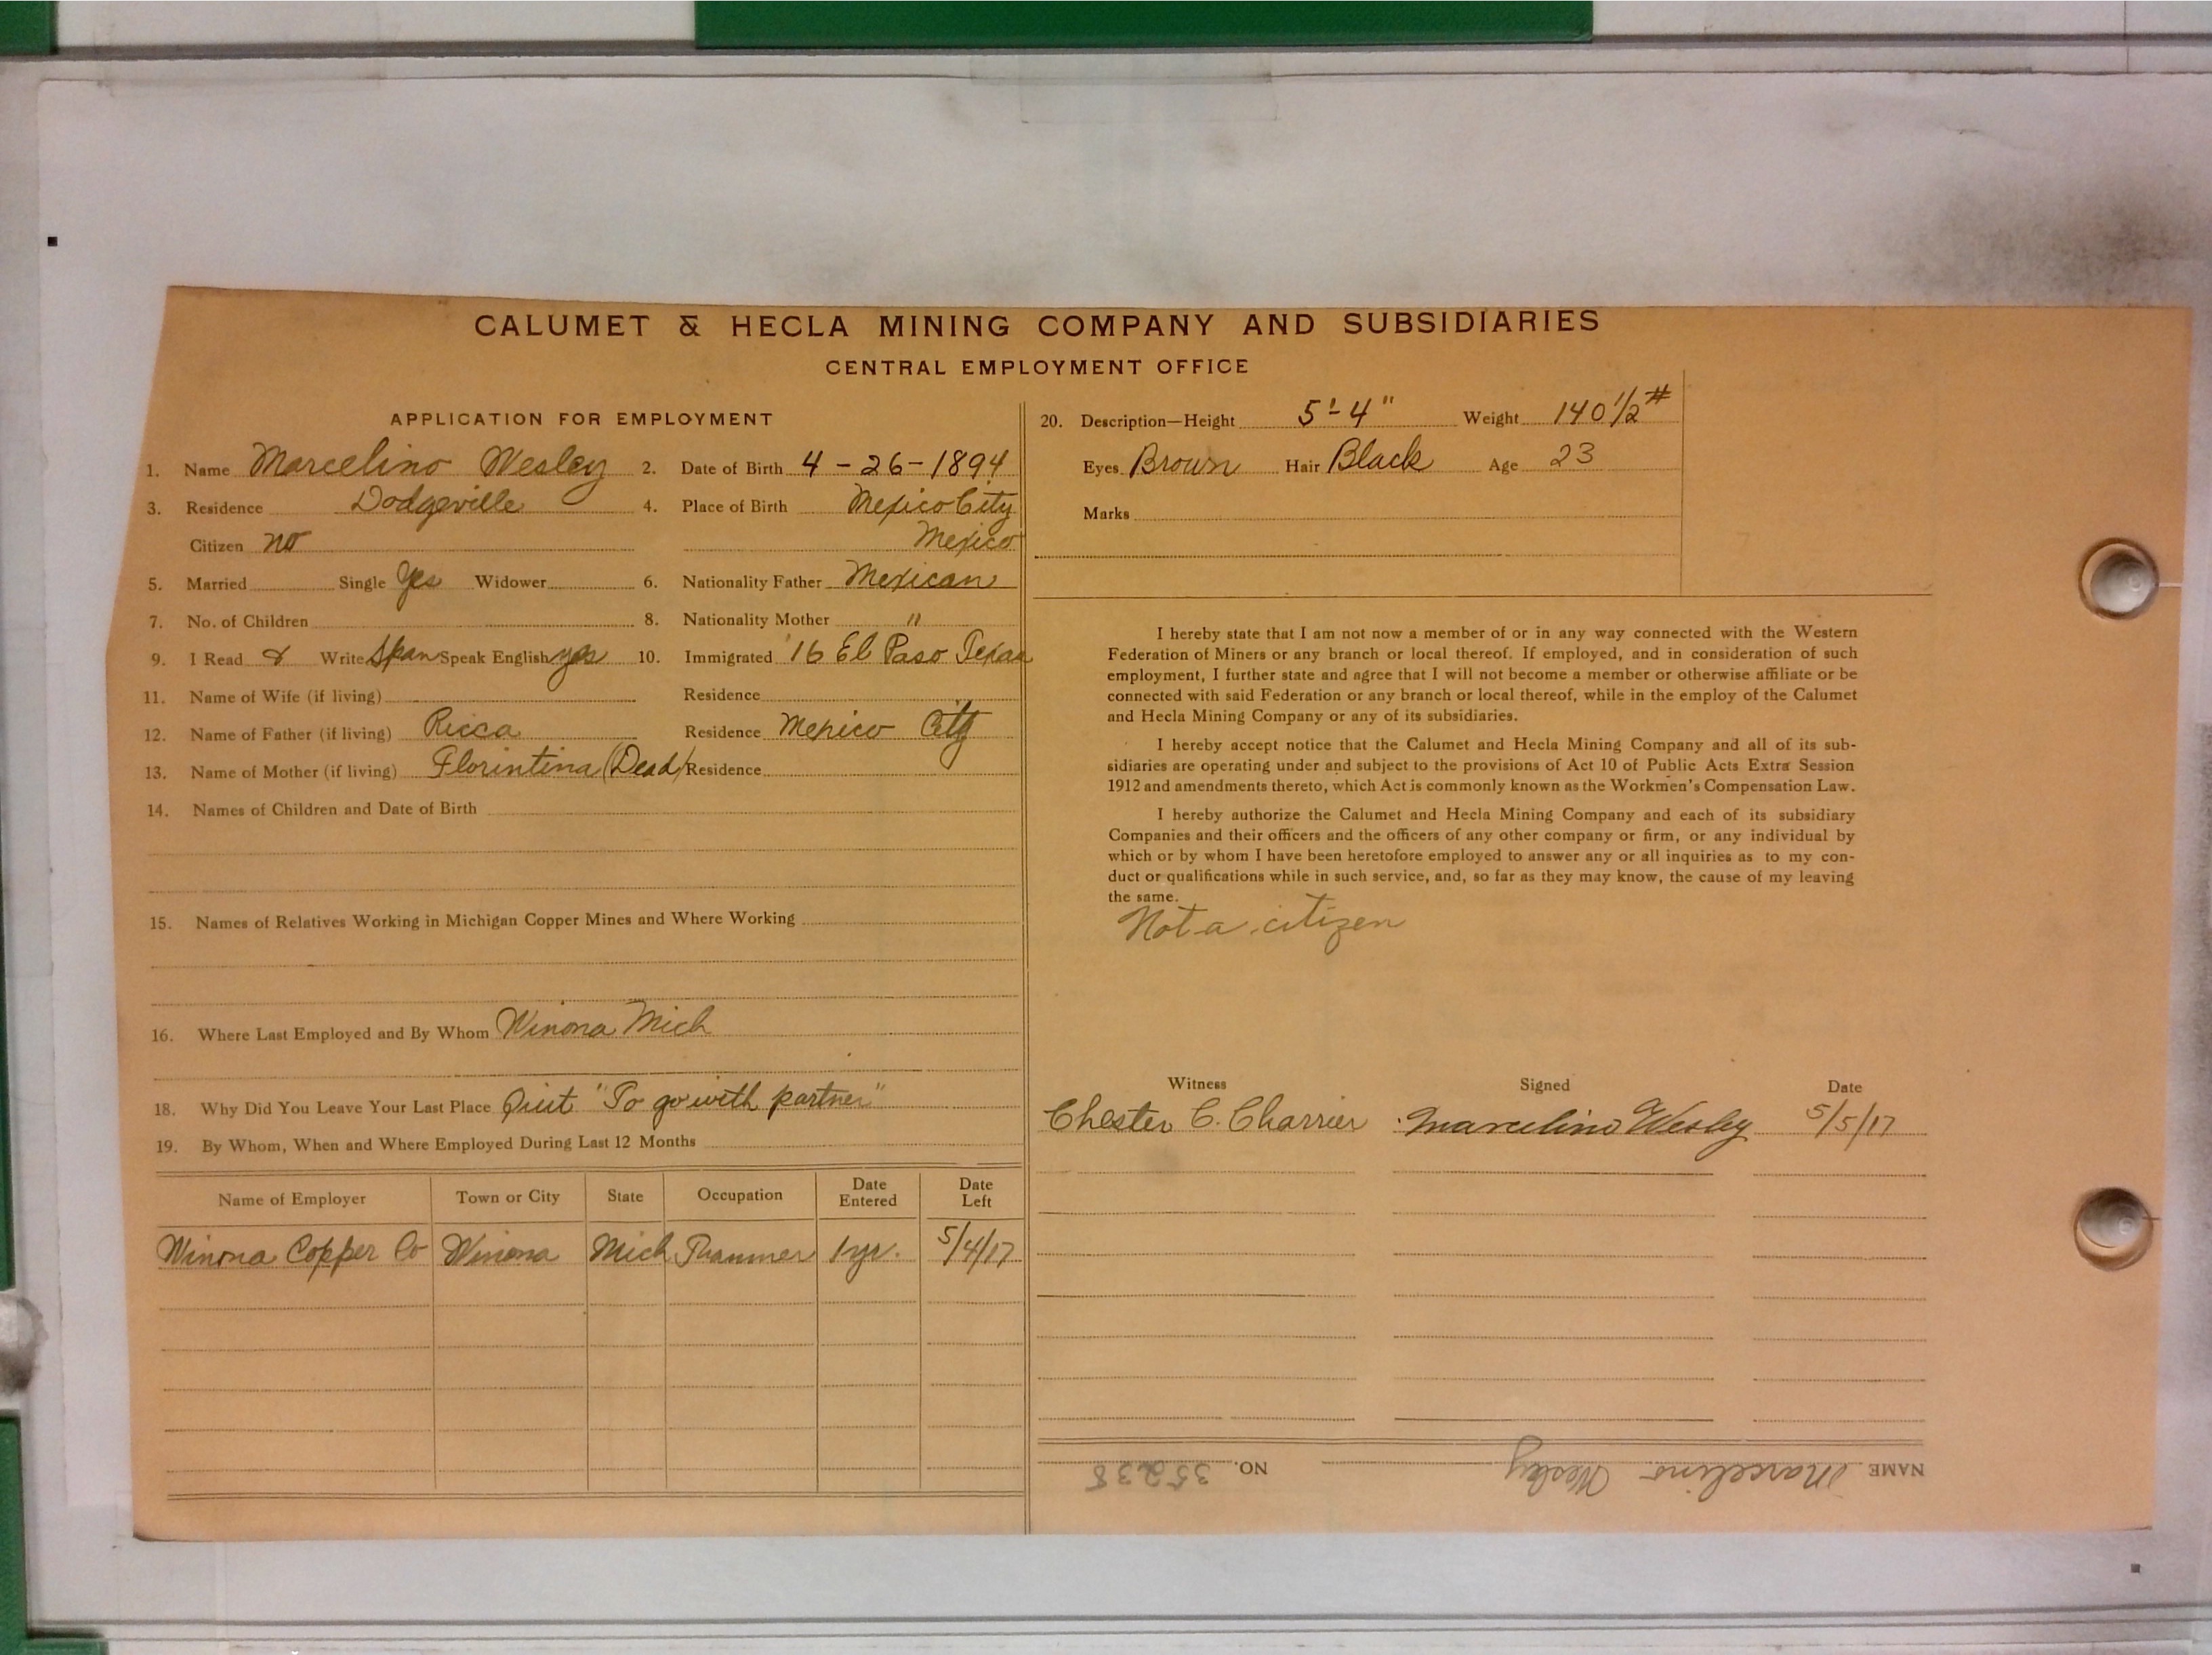 CALUMET & HECLA MINING COMPANY AND SUBSIDIARIES
CENTRAL EMPLOYMENT OFFICE
APPLICATION FOR EMPLOYMENT
1. Name Marcelino Wesley 2. Date of Birth 4-26-1894
3. Residence Dodgeville 4. Place of Birth Mexico City
Citizen no Mexico
5. Married Single Yes Widower 6. Nationality Father Mexican
7. No. of Children 8. Nationality Mother "
9. I Read & Write Span Speak English yes 10. Immigrated '16 El Paso Texas
11. Name of Wife (if living) Residence
12. Name of Father (if living) Ricca Residence Mexico City
13. Name of Mother (if living) Florintina (Dead) Residence
14. Names of Children and Date of Birth
15. Names of Relatives Working in Michigan Copper Mines and Where Working
16. Where Last Employed and By Whom Winona Mich
18. Why Did You Leave Your Last Place Quit "To go with partner"
19. By Whom, When and Where Employed During Last 12 Months
Name of Employer Town or City State Occupation Date Entered Date Left
Winona Copper Co Winona Mich Trammer 1 yr. 5/4/17
20. Description—Height 5'-4" Weight 140 1/2 #
Eyes Brown Hair Black Age 23
Marks
I hereby state that I am not now a member of or in any way connected with the Western
Federation of Miners or any branch or local thereof. If employed, and in consideration of such
employment, I further state and agree that I will not become a member or otherwise affiliate or be
connected with said Federation or any branch or local thereof, while in the employ of the Calumet
and Hecla Mining Company or any of its subsidiaries.
I hereby accept notice that the Calumet and Hecla Mining Company and all of its sub-
sidiaries are operating under and subject to the provisions of Act 10 of Public Acts Extra Session
1912 and amendments thereto, which Act is commonly known as the Workmen's Compensation Law.
I hereby authorize the Calumet and Hecla Mining Company and each of its subsidiary
Companies and their officers and the officers of any other company or firm, or any individual by
which or by whom I have been heretofore employed to answer any or all inquiries as to my con-
duct or qualifications while in such service, and, so far as they may know, the cause of my leaving
the same.
Not a citizen
Witness Signed Date
Chester C. Charrier Marcelino Wesley 5/5/17
NAME Marcelino Wesley NO. 35238